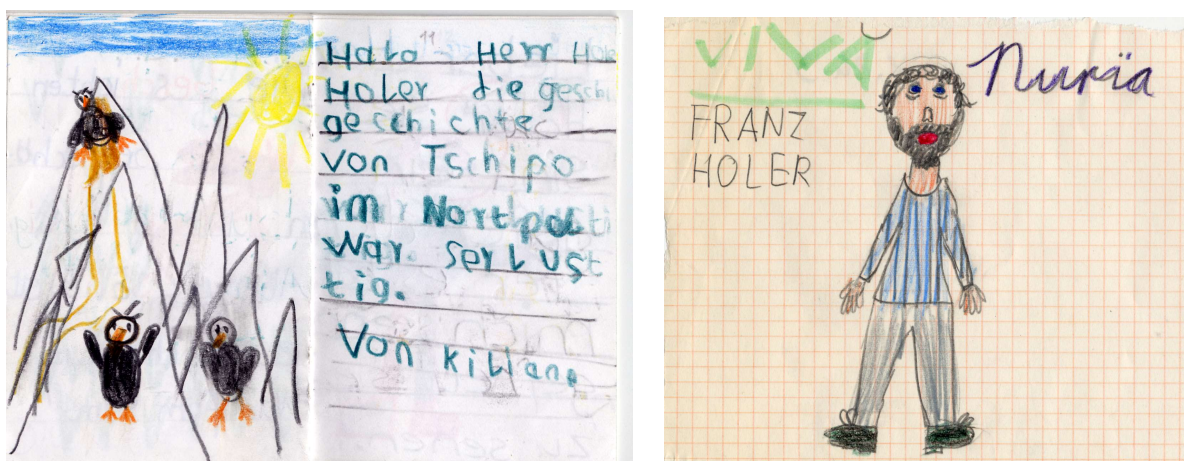 11
Halo Herr Hole
Holer die geschi
geschichte
von Tschipo
im Nortpol
War. ser lust
tig.
Von kilian
VIVA
Nuria
FRANZ
HOLER